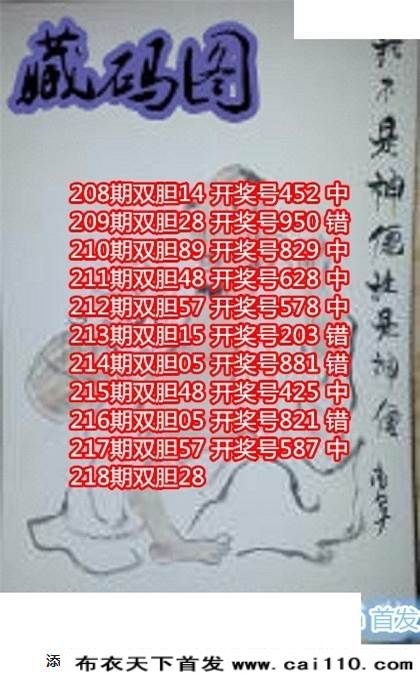 藏码图
我不是神便牡是神僊
208期双胆14 开奖号452 中
209期双胆28 开奖号950 错
210期双胆89 开奖号829 中
211期双胆48 开奖号628 中
212期双胆57 开奖号578 中
213期双胆15 开奖号203 错
214期双胆05 开奖号881 错
215期双胆48 开奖号425 中
216期双胆05 开奖号821 错
217期双胆57 开奖号587 中
218期双胆28
首发
添 布衣天下首发 www.cai110.com